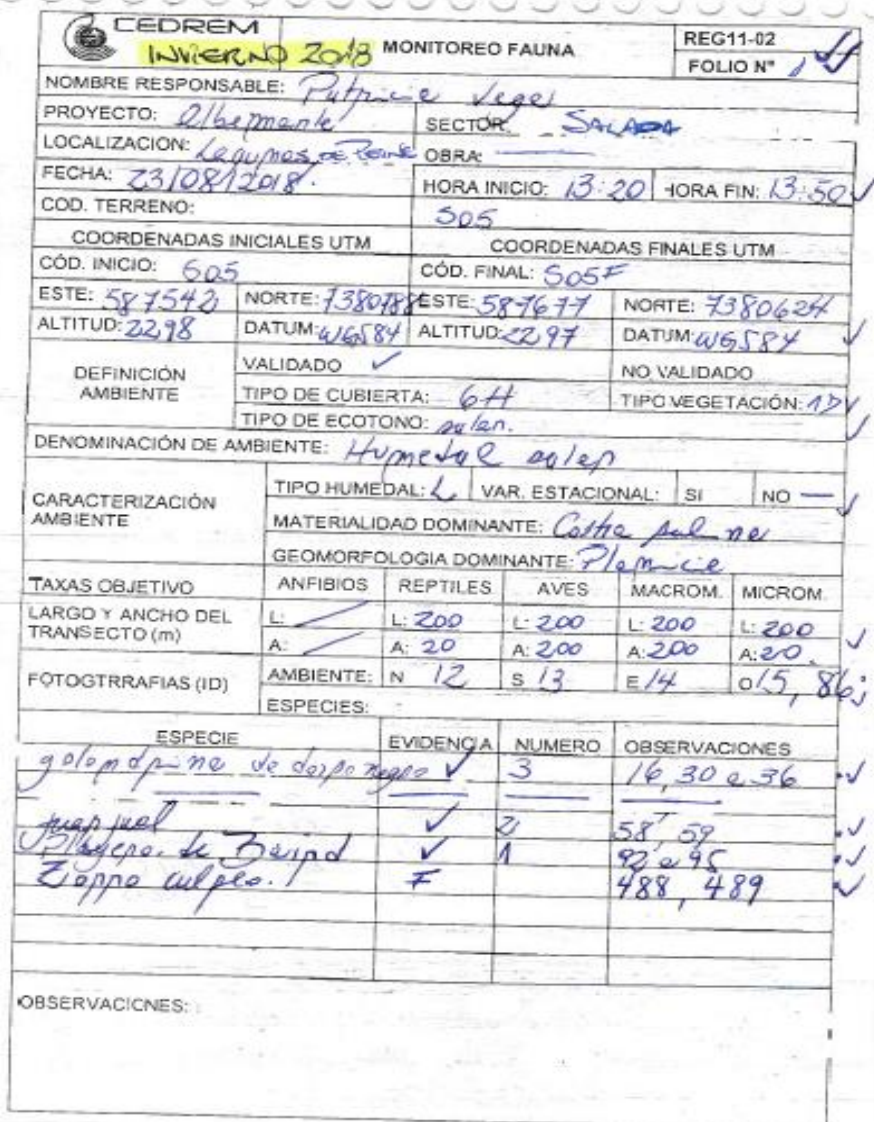 CEDREM
INVIERNO 2018 MONITOREO FAUNA REG11-02
FOLIO N° 1
NOMBRE RESPONSABLE: Patricia Vega
PROYECTO: Albemarle SECTOR: SALADA
LOCALIZACION: Lagunas OBRA: —
FECHA: 23/08/2018. HORA INICIO: 13:20 HORA FIN: 13:50
COD. TERRENO: S05
COORDENADAS INICIALES UTM COORDENADAS FINALES UTM
CÓD. INICIO: S05 CÓD. FINAL: S05F
ESTE: 587542 NORTE: ESTE: 587677 NORTE: 7380624
ALTITUD: 2298 DATUM: WGS84 ALTITUD: 2297 DATUM: WGS84
DEFINICIÓN AMBIENTE VALIDADO ✓ NO VALIDADO
TIPO DE CUBIERTA: 6H TIPO VEGETACIÓN:
TIPO DE ECOTONO: salar.
DENOMINACIÓN DE AMBIENTE: Humedal salar
CARACTERIZACIÓN AMBIENTE TIPO HUMEDAL: L VAR. ESTACIONAL: SI NO —
MATERIALIDAD DOMINANTE: Costra salina
GEOMORFOLOGIA DOMINANTE: Planicie
TAXAS OBJETIVO ANFIBIOS REPTILES AVES MACROM. MICROM.
LARGO Y ANCHO DEL TRANSECTO (m) L: / L: 200 L: 200 L: 200 L: 200
A: / A: 20 A: 200 A: 200 A: 20
FOTOGTRRAFIAS (ID) AMBIENTE: N 12 S 13 E 14 O 15, 86
ESPECIES:
ESPECIE EVIDENCIA NUMERO OBSERVACIONES
golondrina de dorso negro ✓ 3 16, 30 a 36
juarjual ✓ 2 58, 59
Playero de Baird ✓ 1 92 a 95
Zorro culpeo. F 488, 489
OBSERVACIONES: